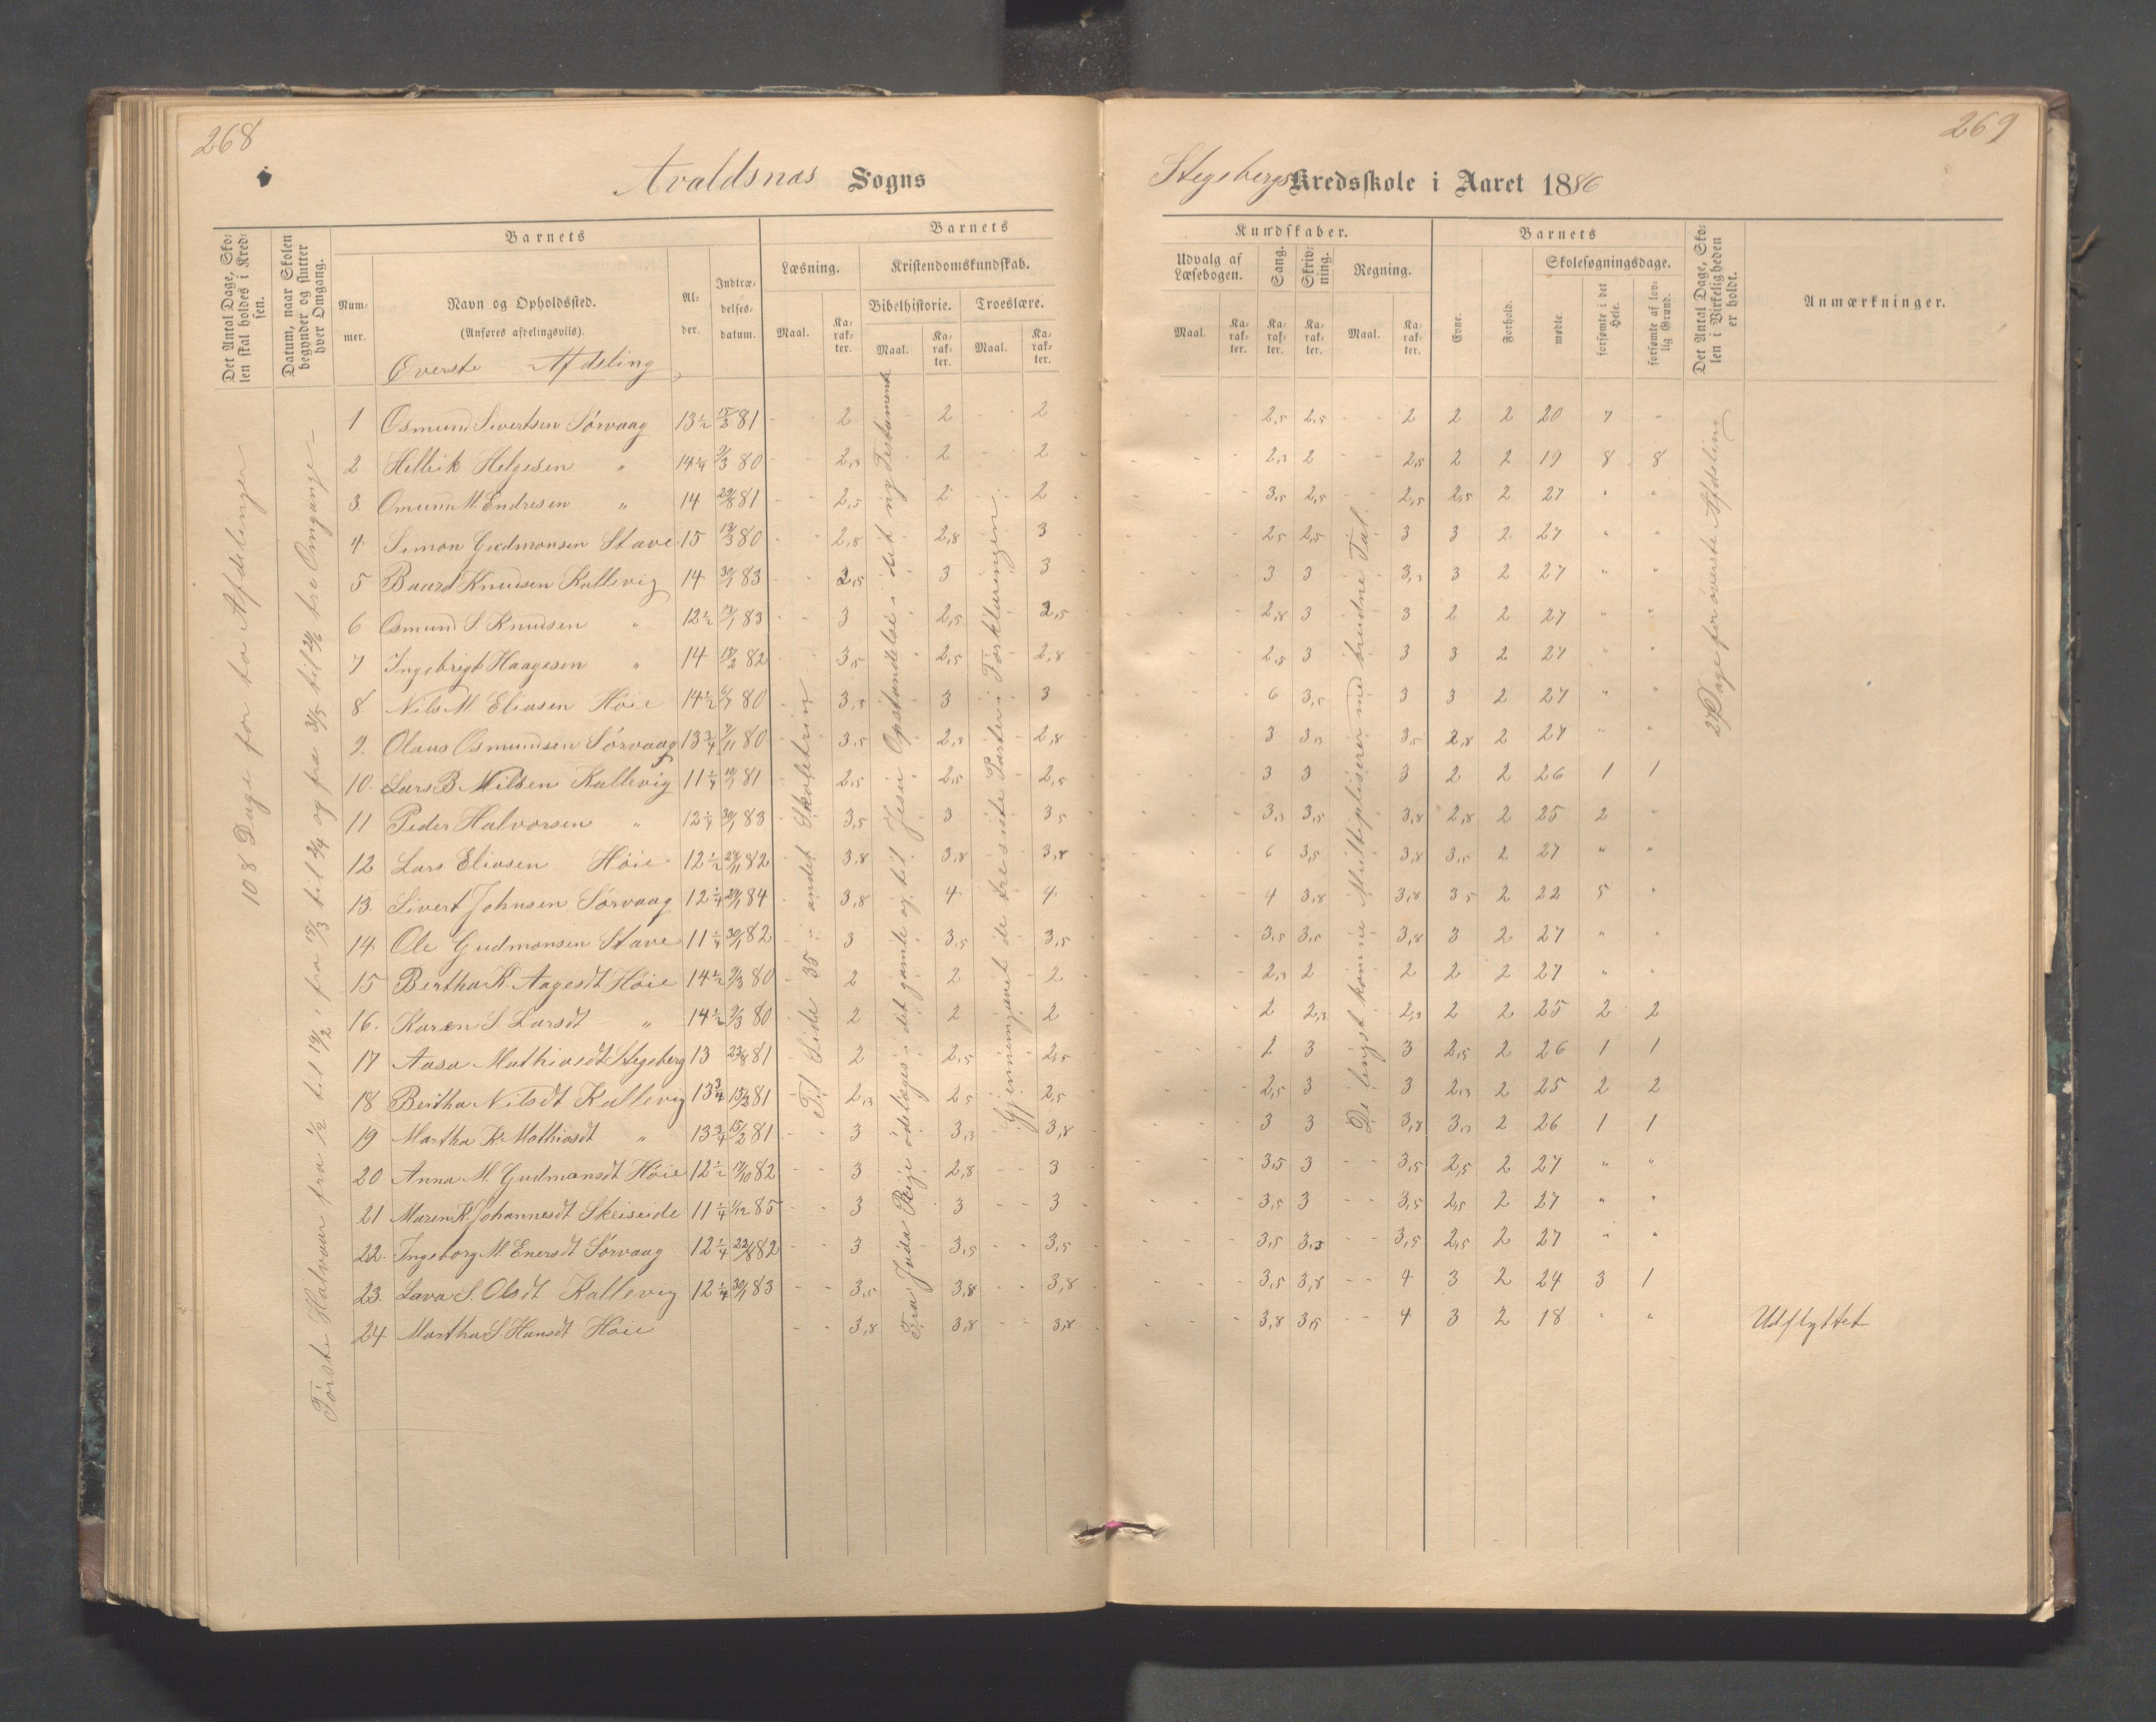 268
269
Avaldsnæs Sogns
Stegebergs Kredsskole i Aaret 1886
Det Antal Dage, Skolen skal holdes i Kredsen.
Datum, naar Skolen begynder og slutter hver Omgang.
Barnets
Nummer.
Navn og Opholdssted.
(Anføres afdelingsviis).
Alder.
Indtrædelsesdatum.
Barnets
Læsning.
Kristendomskundskab.
Bibelhistorie.
Troeslære.
Maal.
Karakter.
Maal.
Karakter.
Maal.
Karakter.
Kundskaber.
Udvalg af Læsebogen.
Sang.
Skrivning.
Regning.
Maal.
Karakter.
Karakter.
Karakter.
Maal.
Karakter.
Barnets
Evne.
Forhold.
Skolesøgningsdage.
mødte.
forsømte i det Hele.
forsømte af lovlig Grund.
Det Antal Dage, Skolen i Virkeligheden er holdt.
Anmærkninger.
Øverste Afdeling
108 Dage for to Afdelinger
Første Halvaar fra 1/2 til 19/2, fra 15/3 til 2/4 og fra 31/5 til 21/6 tre Omgange
Til Side 35 i andet Skoletrin
Fra Juda Rige ødelægges i det gamle og til Jesu Opstandelse i det ny Testamente
Gjennemgaaet de tre sidste Parter i Forklaringen
De lengst komne Multipliserer med brudne Tal.
27 Dage for øverste Afdeling
1 Osmund Sivertsen Sørvaag 13½ 15/2 81 2 2 2 2,5 2,5 2 2 2 20 7 "
2 Helleik Helgesen " 14¼ 9/3 80 2,3 2 2 2,3 2 2,5 2 2 19 8 8
3. Omund M. Endresen " 14 29/8 81 2,5 2 2 3,5 2,5 2,5 2,5 2 27 " "
4. Simon Gudmonsen Stave 15 13/3 80 2,8 2,8 3 2,5 2,5 3 3 2 27 " "
5 Baard Knudsen Kallevig 14 30/1 83 2,5 3 3 3 3 3,3 3 2 27 " "
6 Osmund S. Knudsen " 12½ 13/1 83 3 2,5 2,5 2,8 3 3 2 2 27 " "
7 Ingebrigt Haagesen " 14 15/2 82 3,5 2,5 2,8 2,5 3 3 3 2 27 " "
8 Nils M. Eliasen Høie 14½ 6/7 80 3,5 3 3 6 3,5 3 3 2 27 " "
9. Olaus Osmundsen Sørvaag 13¾ 9/11 80 3,5 2,5 2,8 3 3,3 3,5 2,8 2 27 " "
10. Lars B. Nilsen Kallevig 11¼ 10/1 81 2,5 2,5 2,5 3 3 3 2 2 26 1 1
11 Peder Halvorsen " 12¼ 30/1 83 3,5 3 3,5 3,3 3,5 3,8 2,8 2 25 2 "
12 Lars Eliasen Høie 12½ 29/11 82 3,8 3,8 3,8 6 3,5 3,8 3,5 2 27 " "
13. Sivert Johnsen Sørvaag 12¼ 29/1 84 3,8 4 4 4 3,8 3,8 3,5 2 22 5 "
14 Ole Gudmonsen Stave 11¼ 30/1 82 3 3,5 3,5 3,5 3,5 3,8 3 2 27 " "
15 Bertha K. Aagesdt Høie 14½ 9/3 80 2 2 2 2,3 2 2 2 2 27 " "
16. Karen S. Larsdt " 14½ 9/3 80 2 2 2 2 2,3 2,3 2 2 25 2 2
17 Aasa Mathiasdt Stegeberg 13 23/8 81 2 2,5 2,5 2 3 3 2,5 2 26 1 1
18 Bertha Nilsdt Kallevig 13¾ 15/2 81 2,3 2,5 2,5 2,5 3 3 2,3 2 25 2 2
19 Martha K. Mathiasdt " 13¾ 15/2 81 3 3,3 3,8 3 3 3,8 3,3 2 26 1 1
20 Anna M. Gudmansdt Høie 12½ 17/10 82 3 2,8 3 3,5 3 3,5 2,5 2 27 " "
21 Maren K. Johannesdt Skeiseide 11¼ 1/12 85 3 3 3 3,5 3 3,5 2,5 2 27 " "
22. Ingeborg M. Enersdt Sørvaag 12¼ 22/8 82 3 3,5 3,5 3,5 3,5 3,5 2,5 2 27 " "
23. Lava S. Olsdt Kallevig 12¼ 30/1 83 3,5 3,8 3,8 3,5 3,8 4 3 2 24 3 1
24 Martha S. Hansdt Høie 3,8 3,8 3,8 3,8 3,5 4 3 2 18 " " Udflyttet